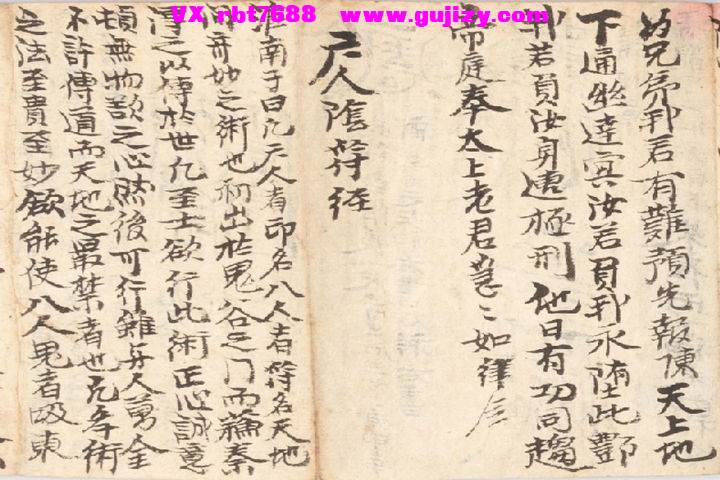 VX rbt7688 www.gujizy.com
为兄弟我君有難預先報陳天上地
下通幽達冥汝若負我永堕此酆
我若負汝身遭極刑他日有功同趨
帝庭奉太上老君急々如律令
六人陰符经
淮南子曰凡六人者印名八人者符名天地
间奇妙之術也初出於鬼谷之门而蘓秦
得之以傳於世凡至士欲行此術正心誠意
頓無物欲之心然後可行雖弃人勇全
不許傳道而天地之最禁者也凡弃術
之法至貴至妙欲能使八人鬼者吸東